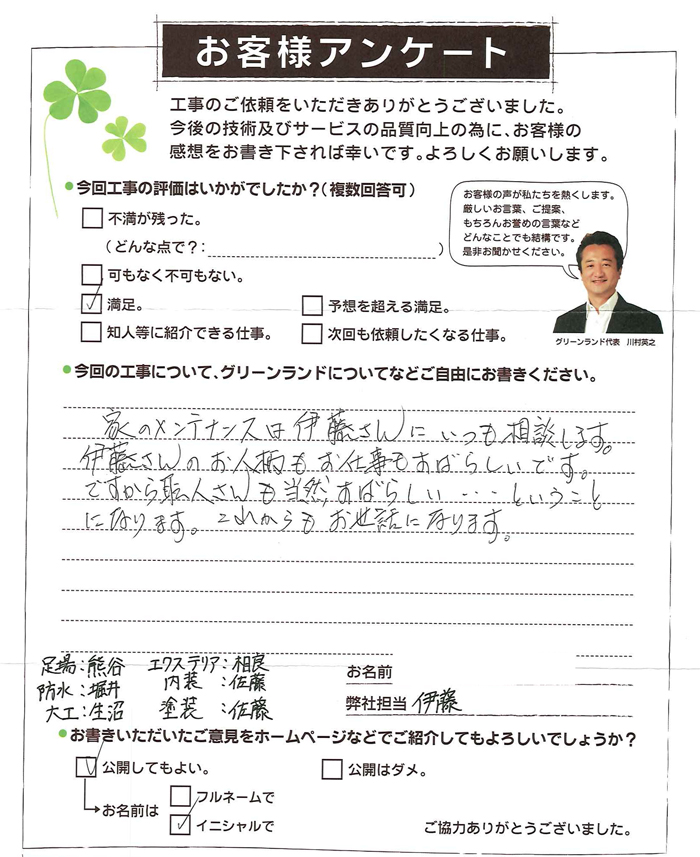 お客様アンケート
工事のご依頼をいただきありがとうございました。
今後の技術及びサービスの品質向上の為に、お客様の
感想をお書き下されば幸いです。よろしくお願いします。
今回工事の評価はいかがでしたか？（複数回答可）
不満が残った。
（どんな点で？：　）
可もなく不可もない。
満足。
予想を超える満足。
知人等に紹介できる仕事。
次回も依頼したくなる仕事。
お客様の声が私たちを熱くします。
厳しいお言葉、ご提案、
もちろんお誉めの言葉など
どんなことでも結構です。
是非お聞かせください。
グリーンランド代表　川村英之
今回の工事について、グリーンランドについてなどご自由にお書きください。
家のメンテナンスは伊藤さんにいつも相談します。
伊藤さんのお人柄もお仕事もすばらしいです。
ですから職人さんも当然すばらしい・・・ということ
になります。これからもお世話になります。
足場：熊谷　エクステリア：相良
防水：堀井　内装：佐藤
大工：生沼　塗装：佐藤
お名前
弊社担当 伊藤
お書きいただいたご意見をホームページなどでご紹介してもよろしいでしょうか？
公開してもよい。
公開はダメ。
お名前は
フルネームで
イニシャルで
ご協力ありがとうございました。